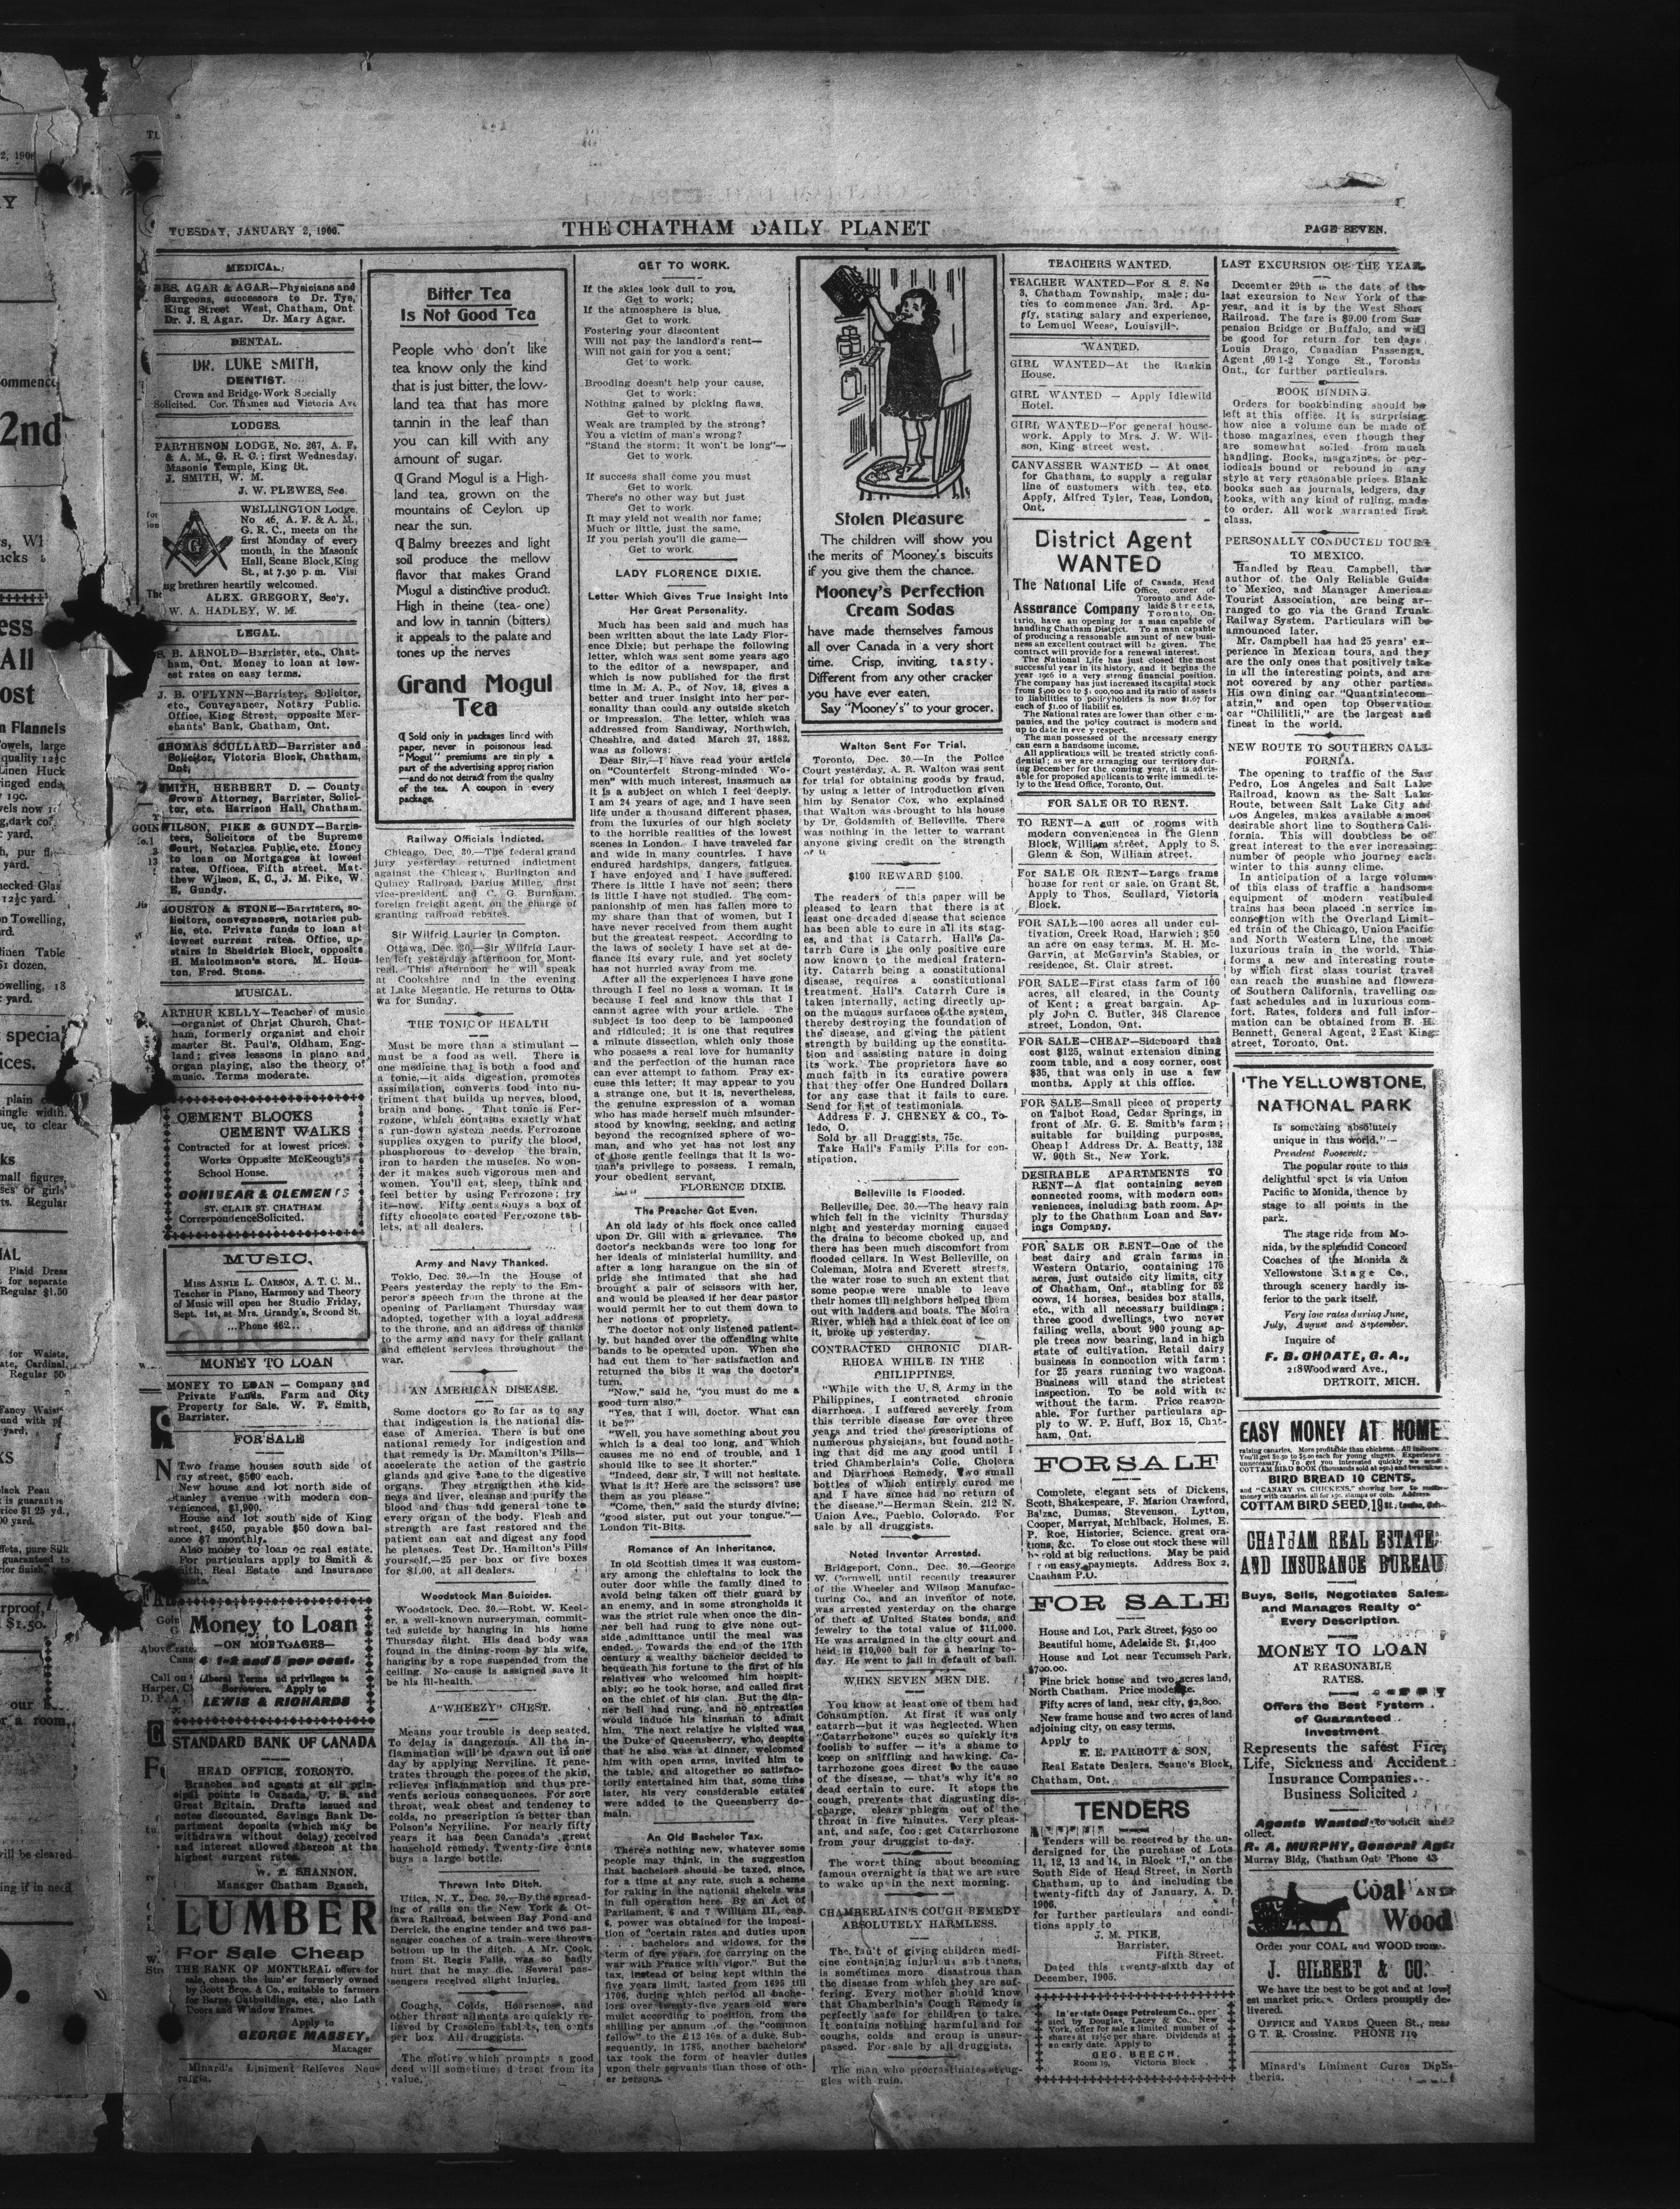 TUESDAY, JANUARY 2, 1906.
THE CHATHAM DAILY PLANET
PAGE SEVEN.
MEDICAL.
DRS. AGAR & AGAR—Physicians and
Surgeons, successors to Dr. Tye,
King Street West, Chatham, Ont.
Dr. J. S. Agar. Dr. Mary Agar.
DENTAL.
DR. LUKE SMITH,
DENTIST.
Crown and Bridge Work Specially
Solicited. Cor. Thames and Victoria Ave
LODGES.
PARTHENON LODGE, No. 267, A. F.
& A. M., G. R. C.; first Wednesday,
Masonic Temple, King St.
J. SMITH, W. M.
J. W. PLEWES, Sec.
WELLINGTON Lodge,
No 46, A. F. & A. M.,
G. R. C., meets on the
first Monday of every
month, in the Masonic
Hall, Scane Block, King
St., at 7.30 p. m. Visi
ng brethren heartily welcomed.
ALEX. GREGORY, Sec'y.
W. A. HADLEY, W. M.
LEGAL.
S. B. ARNOLD—Barrister, etc., Chat-
ham, Ont. Money to loan at low-
est rates on easy terms.
J. B. O'FLYNN—Barrister, Solicitor,
etc., Conveyancer, Notary Public.
Office, King Street, opposite Mer-
chants' Bank, Chatham, Ont.
THOMAS SCULLARD—Barrister and
Solicitor, Victoria Block, Chatham,
Ont.
SMITH, HERBERT D. — County
Crown Attorney, Barrister, Solici-
tor, etc. Harrison Hall, Chatham.
WILSON, PIKE & GUNDY—Barris-
ters, Solicitors of the Supreme
Court, Notaries Public, etc. Money
to loan on Mortgages at lowest
rates. Offices, Fifth street. Mat-
thew Wilson, K. C., J. M. Pike, W.
E. Gundy.
HOUSTON & STONE—Barristers, so-
licitors, conveyancers, notaries pub-
lic, etc. Private funds to loan at
lowest current rates. Office, up-
stairs in Sheldrick Block, opposite
H. Malcolmson's store. M. Hous-
ton, Fred. Stone.
MUSICAL.
ARTHUR KELLY—Teacher of music
—organist of Christ Church, Chat-
ham, formerly organist and choir
master St. Paul's, Oldham, Eng-
land; gives lessons in piano and
organ playing, also the theory of
music. Terms moderate.
CEMENT BLOCKS
CEMENT WALKS
Contracted for at lowest prices.
Works Opposite McKeough's
School House.
CONIBEAR & CLEMENTS
ST. CLAIR ST. CHATHAM
Correspondence Solicited.
MUSIC.
MISS ANNIE L. CARSON, A. T. C. M.,
Teacher in Piano, Harmony and Theory
of Music will open her Studio Friday,
Sept. 1st, at Mrs. Grandy's, Second St.
...Phone 462...
MONEY TO LOAN
MONEY TO LOAN — Company and
Private Funds. Farm and City
Property for Sale. W. F. Smith,
Barrister.
FOR SALE
Two frame houses south side of
ray street, $500 each.
New house and lot north side of
Stanley avenue with modern con-
veniences, $1,900.
House and lot south side of King
street, $450, payable $50 down bal-
ance $7 monthly.
Also money to loan on real estate.
For particulars apply to Smith &
Smith, Real Estate and Insurance
Money to Loan
—ON MORTGAGES—
4 1-2 and 5 per cent.
Liberal Terms and privileges to
Borrowers. Apply to
LEWIS & RICHARDS
STANDARD BANK OF CANADA
HEAD OFFICE, TORONTO.
Branches and agents at all prin-
cipal points in Canada, U. S. and
Great Britain. Drafts issued and
notes discounted. Savings Bank De-
partment deposits (which may be
withdrawn without delay) received
and interest allowed thereon at the
highest current rates.
W. T. SHANNON,
Manager Chatham Branch.
LUMBER
For Sale Cheap
THE BANK OF MONTREAL offers for
sale, cheap, the lumber formerly owned
by Scott Bros. & Co., suitable to farmers
for Barns, Outbuildings, etc., also Lath
Doors and Window Frames.
Apply to
GEORGE MASSEY,
Manager
Minard's Liniment Relieves Neu-
ralgia.
Bitter Tea
Is Not Good Tea
People who don't like
tea know only the kind
that is just bitter, the low-
land tea that has more
tannin in the leaf than
you can kill with any
amount of sugar.
¶ Grand Mogul is a High-
land tea, grown on the
mountains of Ceylon up
near the sun.
¶ Balmy breezes and light
soil produce the mellow
flavor that makes Grand
Mogul a distinctive product.
High in theine (tea-tone)
and low in tannin (bitters)
it appeals to the palate and
tones up the nerves
Grand Mogul
Tea
¶ Sold only in packages lined with
paper, never in poisonous lead.
"Mogul" premiums are simply a
part of the advertising appropriation
—and do not detract from the quality
of the tea. A coupon in every
package.
Railway Officials Indicted.
Chicago, Dec. 30.—The federal grand
jury yesterday returned indictment
against the Chicago, Burlington and
Quincy Railroad, Darius Miller, first
vice-president, and C. G. Burnham,
foreign freight agent, on the charge of
granting railroad rebates.
Sir Wilfrid Laurier In Compton.
Ottawa, Dec. 30.—Sir Wilfrid Laur-
ier left yesterday afternoon for Mont-
real. This afternoon he will speak
at Cookshire and in the evening
at Lake Megantic. He returns to Otta-
wa for Sunday.
THE TONIC OF HEALTH
Must be more than a stimulant —
must be a food as well. There is
one medicine that is both a food and
a tonic,—it aids digestion, promotes
assimilation, converts food into nu-
triment that builds up nerves, blood,
brain and bone. That tonic is Fer-
rozone, which contains exactly what
a run-down system needs. Ferrozone
supplies oxygen to purify the blood,
phosphorous to develop the brain,
iron to harden the muscles. No won-
der it makes such vigorous men and
women. You'll eat, sleep, think and
feel better by using Ferrozone; try
it—now. Fifty cents buys a box of
fifty chocolate coated Ferrozone tab-
lets, at all dealers.
Army and Navy Thanked.
Tokio, Dec. 30.—In the House of
Peers yesterday the reply to the Em-
peror's speech from the throne at the
opening of Parliament Thursday was
adopted, together with a loyal address
to the throne, and an address of thanks
to the army and navy for their gallant
and efficient services throughout the
war.
AN AMERICAN DISEASE.
Some doctors go so far as to say
that indigestion is the national dis-
ease of America. There is but one
national remedy for indigestion and
that remedy is Dr. Hamilton's Pills—
accelerate the action of the gastric
glands and give tone to the digestive
organs. They strengthen the kid-
neys and liver, cleanse and purify the
blood and thus add general tone to
every organ of the body. Flesh and
strength are fast restored and the
patient can eat and digest any food
he pleases. Test Dr. Hamilton's Pills
yourself,—25 per box or five boxes
for $1.00, at all dealers.
Woodstock Man Suicides.
Woodstock, Dec. 30.—Robt. W. Keel-
er, a well-known nurseryman, commit-
ted suicide by hanging in his home
Thursday night. His dead body was
found in the dining-room by his wife,
hanging by a rope suspended from the
ceiling. No cause is assigned save it
be his ill-health.
A "WHEEZY" CHEST.
Means your trouble is deep seated.
To delay is dangerous. All the in-
flammation will be drawn out in one
day by applying Nerviline. It pene-
trates through the pores of the skin,
relieves inflammation and thus pre-
vents serious consequences. For sore
throat, weak chest and tendency to
colds, no prescription is better than
Polson's Nerviline. For nearly fifty
years it has been Canada's great
household remedy. Twenty-five cents
buys a large bottle.
Thrown Into Ditch.
Utica, N. Y., Dec. 30.—By the spread-
ing of rails on the New York & Ot-
tawa Railroad, between Bay Pond and
Derrick, the engine tender and two pas-
senger coaches of a train were thrown
bottom up in the ditch. A Mr. Cook,
from St. Regis Falls, was so badly
hurt that he may die. Several pas-
sengers received slight injuries.
Coughs, Colds, Hoarseness, and
other throat ailments are quickly re-
lieved by Cresolene tablets, ten cents
per box. All druggists.
The motive which prompts a good
deed will sometimes detract from its
value.
GET TO WORK.
If the skies look dull to you,
Get to work;
If the atmosphere is blue,
Get to work.
Fostering your discontent
Will not pay the landlord's rent—
Will not gain for you a cent;
Get to work.
Brooding doesn't help your cause,
Get to work;
Nothing gained by picking flaws,
Get to work.
Weak are trampled by the strong?
You a victim of man's wrong?
"Stand the storm; it won't be long"—
Get to work.
If success shall come you must
Get to work.
There's no other way but just
Get to work.
It may yield not wealth nor fame;
Much or little, just the same,
If you perish you'll die game—
Get to work.
LADY FLORENCE DIXIE.
Letter Which Gives True Insight Into
Her Great Personality.
Much has been said and much has
been written about the late Lady Flor-
ence Dixie; but perhaps the following
letter, which was sent some years ago
to the editor of a newspaper, and
which is now published for the first
time in M. A. P., of Nov. 18, gives a
better and truer insight into her per-
sonality than could any outside sketch
or impression. The letter, which was
addressed from Sandiway, Northwich,
Cheshire, and dated March 27, 1882,
was as follows:
Dear Sir,—I have read your article
on "Counterfeit Strong-minded Wo-
men" with much interest, inasmuch as
it is a subject on which I feel deeply.
I am 24 years of age, and I have seen
life under a thousand different phases,
from the luxuries of our high society
to the horrible realities of the lowest
scenes in London. I have traveled far
and wide in many countries. I have
endured hardships, dangers, fatigues.
I have enjoyed and I have suffered.
There is little I have not seen; there
is little I have not studied. The com-
panionship of men has fallen more to
my share than that of women, but I
have never received from them aught
but the greatest respect. According to
the laws of society I have set at de-
fiance its every rule, and yet society
has not hurried away from me.
After all the experiences I have gone
through I feel no less a woman. It is
because I feel and know this that I
cannot agree with your article. The
subject is too deep to be lampooned
and ridiculed; it is one that requires
a minute dissection, which only those
who possess a real love for humanity
and the perfection of the human race
can ever attempt to fathom. Pray ex-
cuse this letter; it may appear to you
a strange one, but it is, nevertheless,
the genuine expression of a woman
who has made herself much misunder-
stood by knowing, seeking, and acting
beyond the recognized sphere of wo-
man, and who yet has not lost any
of those gentle feelings that it is wo-
man's privilege to possess. I remain,
your obedient servant,
FLORENCE DIXIE.
The Preacher Got Even.
An old lady of his flock once called
upon Dr. Gill with a grievance. The
doctor's neckbands were too long for
her ideals of ministerial humility, and
after a long harangue on the sin of
pride she intimated that she had
brought a pair of scissors with her,
and would be pleased if her dear pastor
would permit her to cut them down to
her notions of propriety.
The doctor not only listened patient-
ly, but handed over the offending white
bands to be operated upon. When she
had cut them to her satisfaction and
returned the bibs it was the doctor's
turn.
"Now," said he, "you must do me a
good turn also."
"Yes, that I will, doctor. What can
it be?"
"Well, you have something about you
which is a deal too long, and which
causes me no end of trouble, and I
should like to see it shorter."
"Indeed, dear sir, I will not hesitate.
What is it? Here are the scissors? use
them as you please."
"Come, then," said the sturdy divine;
"good sister, put out your tongue."—
London Tit-Bits.
Romance of An Inheritance.
In old Scottish times it was custom-
ary among the chieftains to lock the
outer door while the family dined to
avoid being taken off their guard by
an enemy, and in some strongholds it
was the strict rule when once the din-
ner bell had rung to give none out-
side admittance until the meal was
ended. Towards the end of the 17th
century a wealthy bachelor decided to
bequeath his fortune to the first of his
relatives who welcomed him hospit-
ably; so he took horse, and called first
on the chief of his clan. But the din-
ner bell had rung, and no entreaties
would induce his kinsman to admit
him. The next relative he visited was
the Duke of Queensberry, who, despite
that he also was at dinner, welcomed
him with open arms, invited him to
the table, and altogether so satisfac-
torily entertained him that, some time
later, his very considerable estates
were added to the Queensberry do-
main.
An Old Bachelor Tax.
There's nothing new, whatever some
people may think, in the suggestion
that bachelors should be taxed, since,
for a time at any rate, such a scheme
for raking in the national shekels was
in full operation here. By an Act of
Parliament, 6 and 7 William III., cap.
6, power was obtained for the imposi-
tion of "certain rates and duties upon
. . . bachelors and widows, for the
term of five years, for carrying on the
war with France with vigor." But the
tax, instead of being kept within the
five years limit, lasted from 1695 till
1706, during which period all bache-
lors over twenty-five years old were
mulct according to position, from the
shilling per annum of the "common
fellow" to the £12 10s. of a duke. Sub-
sequently, in 1785, another bachelors'
tax took the form of heavier duties
upon their servants than those of oth-
er persons.
Stolen Pleasure
The children will show you
the merits of Mooney's biscuits
if you give them the chance.
Mooney's Perfection
Cream Sodas
have made themselves famous
all over Canada in a very short
time. Crisp, inviting, tasty.
Different from any other cracker
you have ever eaten.
Say "Mooney's" to your grocer.
Walton Sent For Trial.
Toronto, Dec. 30.—In the Police
Court yesterday, A. R. Walton was sent
for trial for obtaining goods by fraud,
by using a letter of introduction given
him by Senator Cox, who explained
that Walton was brought to his house
by Dr. Goldsmith of Belleville. There
was nothing in the letter to warrant
anyone giving credit on the strength
of it.
$100 REWARD $100.
The readers of this paper will be
pleased to learn that there is at
least one dreaded disease that science
has been able to cure in all its stag-
es, and that is Catarrh. Hall's Ca-
tarrh Cure is the only positive cure
now known to the medical fratern-
ity. Catarrh being a constitutional
disease, requires a constitutional
treatment. Hall's Catarrh Cure is
taken internally, acting directly up-
on the mucous surfaces of the system,
thereby destroying the foundation of
the disease, and giving the patient
strength by building up the constitu-
tion and assisting nature in doing
its work. The proprietors have so
much faith in its curative powers
that they offer One Hundred Dollars
for any case that it fails to cure.
Send for list of testimonials.
Address F. J. CHENEY & CO., To-
ledo, O.
Sold by all Druggists, 75c.
Take Hall's Family Pills for con-
stipation.
Belleville Is Flooded.
Belleville, Dec. 30.—The heavy rain
which fell in the vicinity Thursday
night and yesterday morning caused
the drains to become choked up, and
there has been much discomfort from
flooded cellars. In West Belleville, on
Coleman, Moira and Everett streets,
the water rose to such an extent that
some people were unable to leave
their homes till neighbors helped them
out with ladders and boats. The Moira
River, which had a thick coat of ice on
it, broke up yesterday.
CONTRACTED CHRONIC DIAR-
RHOEA WHILE IN THE
PHILIPPINES.
"While with the U. S. Army in the
Philippines, I contracted chronic
diarrhoea. I suffered severely from
this terrible disease for over three
years and tried the prescriptions of
numerous physicians, but found noth-
ing that did me any good until I
tried Chamberlain's Colic, Cholera
and Diarrhoea Remedy, two small
bottles of which entirely cured me
and I have since had no return of
the disease."—Herman Stein, 212 N.
Union Ave., Pueblo, Colorado. For
sale by all druggists.
Noted Inventor Arrested.
Bridgeport, Conn., Dec. 30.—George
W. Cornwell, until recently treasurer
of the Wheeler and Wilson Manufac-
turing Co., and an inventor of note,
was arrested yesterday on the charge
of theft of United States bonds, and
jewelry to the total value of $11,000.
He was arraigned in the city court and
held in $10,000 bail for a hearing to-
day. He went to jail in default of bail.
WHEN SEVEN MEN DIE.
You know at least one of them had
Consumption. At first it was only
catarrh—but it was neglected. When
"Catarrhozone" cures so quickly it's
foolish to suffer — it's a shame to
keep on sniffling and hawking. Ca-
tarrhozone goes direct to the cause
of the disease, — that's why it's so
dead certain to cure. It stops the
cough, prevents that disgusting dis-
charge, clears phlegm out of the
throat in five minutes. Very pleas-
ant, and safe, too; get Catarrhozone
from your druggist to-day.
The worst thing about becoming
famous overnight is that we are sure
to wake up in the next morning.
CHAMBERLAIN'S COUGH REMEDY
ABSOLUTELY HARMLESS.
The fault of giving children medi-
cine containing injurious substances,
is sometimes more disastrous than
the disease from which they are suf-
fering. Every mother should know
that Chamberlain's Cough Remedy is
perfectly safe for children to take.
It contains nothing harmful and for
coughs, colds and croup is unsur-
passed. For sale by all druggists.
The man who procrastinates strug-
gles with ruin.
TEACHERS WANTED.
TEACHER WANTED—For S. S. No
3, Chatham Township, male; du-
ties to commence Jan. 3rd. Ap-
ply, stating salary and experience,
to Lemuel Weese, Louisville.
WANTED.
GIRL WANTED—At the Rankin
House.
GIRL WANTED — Apply Idlewild
Hotel.
GIRL WANTED—For general house-
work. Apply to Mrs. J. W. Wil-
son, King street west.
CANVASSER WANTED — At once
for Chatham, to supply a regular
line of customers with tea, etc.
Apply, Alfred Tyler, Teas, London,
Ont.
District Agent
WANTED
The National Life
Assurance Company
of Canada, Head
Office, corner of
Toronto and Ade-
laide Streets,
Toronto, On-
tario, have an opening for a man capable of
handling Chatham District. To a man capable
of producing a reasonable amount of new busi-
ness an excellent contract will be given. The
contract will provide for a renewal interest.
The National Life has just closed the most
successful year in its history, and it begins the
year 1906 in a very strong financial position.
The company has just increased its capital stock
from $500,000 to $1,000,000 and its ratio of assets
to liabilities to policyholders is now $1.67 for
each of $1.00 of liabilities.
The National rates are lower than other com-
panies, and the policy contract is modern and
up to date in every respect.
The man possessed of the necessary energy
can earn a handsome income.
All applications will be treated strictly confi-
dential; as we are arranging our territory dur-
ing December for the coming year, it is advis-
able for proposed applicants to write immediate-
ly to the Head Office, Toronto, Ont.
FOR SALE OR TO RENT.
TO RENT—A suit of rooms with
modern conveniences in the Glenn
Block, William street. Apply to S.
Glenn & Son, William street.
For SALE OR RENT—Large frame
house for rent or sale, on Grant St.
Apply to Thos. Scullard, Victoria
Block.
FOR SALE—100 acres all under cul-
tivation, Creek Road, Harwich; $50
an acre on easy terms. M. H. Mc-
Garvin, at McGarvin's Stables, or
residence, St. Clair street.
FOR SALE—First class farm of 100
acres, all cleared, in the County
of Kent; a great bargain. Ap-
ply John C. Butler, 348 Clarence
street, London, Ont.
FOR SALE—CHEAP—Sideboard that
cost $125, walnut extension dining
room table, and a cosy corner, cost
$35, that was only in use a few
months. Apply at this office.
FOR SALE—Small piece of property
on Talbot Road, Cedar Springs, in
front of Mr. G. E. Smith's farm;
suitable for building purposes.
Cheap! Address Dr. A. Beatty, 132
W. 90th St., New York.
DESIRABLE APARTMENTS TO
RENT—A flat containing seven
connected rooms, with modern con-
veniences, including bath room. Ap-
ply to the Chatham Loan and Sav-
ings Company.
FOR SALE OR RENT—One of the
best dairy and grain farms in
Western Ontario, containing 175
acres, just outside city limits, city
of Chatham, Ont., stabling for 52
cows, 14 horses, besides box stalls,
etc., with all necessary buildings;
three good dwellings, two never
failing wells, about 900 young ap-
ple trees now bearing, land in high
state of cultivation. Retail dairy
business in connection with farm;
for 25 years running two wagons.
Business will stand the strictest
inspection. To be sold with or
without the farm. Price reason-
able. For further particulars ap-
ply to W. P. Huff, Box 15, Chat-
ham, Ont.
FOR SALE
Complete, elegant sets of Dickens,
Scott, Shakespeare, F. Marion Crawford,
Balzac, Dumas, Stevenson, Lytton,
Cooper, Marryat, Muhlback, Holmes, E.
P. Roe, Histories, Science, great ora-
tions, &c. To close out stock these will
be sold at big reductions. May be paid
for on easy payments. Address Box 2,
Chatham P.O.
FOR SALE
House and Lot, Park Street, $950 00
Beautiful home, Adelaide St. $1,400
House and Lot near Tecumseh Park,
$700.00.
Fine brick house and two acres land,
North Chatham. Price moderate.
Fifty acres of land, near city, $2,800.
New frame house and two acres of land
adjoining city, on easy terms.
Apply to
E. E. PARROTT & SON,
Real Estate Dealers, Scane's Block,
Chatham, Ont.
TENDERS
Tenders will be received by the un-
dersigned for the purchase of Lots
11, 12, 13 and 14, in Block "I," on the
South Side of Head Street, in North
Chatham, up to and including the
twenty-fifth day of January, A. D.
1906.
for further particulars and condi-
tions apply to
J. M. PIKE,
Barrister,
Fifth Street.
Dated this twenty-sixth day of
December, 1905.
Interstate Osage Petroleum Co., oper
ated by Douglas, Lacey & Co., New
York, offer for sale a limited number of
shares at 12½c per share. Dividends at
an early date. Apply to
GEO. BEECH,
Room 19, Victoria Block
LAST EXCURSION OF THE YEAR.
December 29th is the date of the
last excursion to New York of the
year, and it is by the West Shore
Railroad. The fare is $9.00 from Sus
pension Bridge or Buffalo, and will
be good for return for ten days.
Louis Drago, Canadian Passenge.
Agent, 69 1-2 Yonge St., Toronto
Ont., for further particulars.
BOOK BINDING.
Orders for bookbinding should be
left at this office. It is surprising
how nice a volume can be made of
those magazines, even though they
are somewhat soiled from much
handling. Books, magazines, or per-
iodicals bound or rebound in any
style at very reasonable prices. Blank
books such as journals, ledgers, day
books, with any kind of ruling, made
to order. All work warranted first
class.
PERSONALLY CONDUCTED TOURS
TO MEXICO.
Handled by Reau Campbell, the
author of the Only Reliable Guide
to Mexico, and Manager American
Tourist Association, are being ar-
ranged to go via the Grand Trunk
Railway System. Particulars will be
announced later.
Mr. Campbell has had 25 years' ex-
perience in Mexican tours, and they
are the only ones that positively take
in all the interesting points, and are
not covered by any other parties.
His own dining car "Quantzintecom-
atzin," and open top Observation
car "Chililitli," are the largest and
finest in the world.
NEW ROUTE TO SOUTHERN CALI-
FORNIA.
The opening to traffic of the San
Pedro, Los Angeles and Salt Lake
Railroad, known as the Salt Lake
Route, between Salt Lake City and
Los Angeles, makes available a most
desirable short line to Southern Cali-
fornia. This will doubtless be of
great interest to the ever increasing
number of people who journey each
winter to this sunny clime.
In anticipation of a large volume
of this class of traffic a handsome
equipment of modern vestibuled
trains has been placed in service in
connection with the Overland Limit-
ed train of the Chicago, Union Pacific
and North Western Line, the most
luxurious train in the world. This
forms a new and interesting route
by which first class tourist travel
can reach the sunshine and flowers
of Southern California, travelling on
fast schedules and in luxurious com-
fort. Rates, folders and full infor-
mation can be obtained from B. H.
Bennett, General Agent, 2 East King
street, Toronto, Ont.
The YELLOWSTONE
NATIONAL PARK
Is something absolutely
unique in this world."—
President Roosevelt.
The popular route to this
delightful spot is via Union
Pacific to Monida, thence by
stage to all points in the
park.
The stage ride from Mo-
nida, by the splendid Concord
Coaches of the Monida &
Yellowstone Stage Co.,
through scenery hardly in-
ferior to the park itself.
Very low rates during June,
July, August and September.
Inquire of
F. B. CHOATE, G. A.,
218 Woodward Ave.,
DETROIT, MICH.
EASY MONEY AT HOME
raising canaries. More profitable than chickens. All indoors.
You'll get $2.50 to $5.00 each for young singers. Experience
unnecessary. To get you interested quickly we send
COTTAM BIRD BOOK (thousands sold at 25c.) and two cakes
BIRD BREAD 10 CENTS,
and "CANARY vs. CHICKENS," showing how to make
money with canaries, all for 15c. stamps or coin. Address
COTTAM BIRD SEED, 19 St., London, Ont.
CHATHAM REAL ESTATE
AND INSURANCE BUREAU
Buys, Sells, Negotiates Sales
and Manages Realty of
Every Description.
MONEY TO LOAN
AT REASONABLE
RATES.
Offers the Best System
of Guaranteed
Investment.
Represents the safest Fire,
Life, Sickness and Accident
Insurance Companies.
Business Solicited
Agents Wanted to solicit and
ollect.
R. A. MURPHY, General Agt.
Murray Bldg, Chatham Ont 'Phone 43
Coal AND
Wood
Order your COAL and WOOD from
J. GILBERT & CO.
We have the best to be got and at low
est market prices. Orders promptly de-
livered.
OFFICE and YARDS Queen St., near
G T. R. Crossing. PHONE 119
Minard's Liniment Cures Diph-
theria.